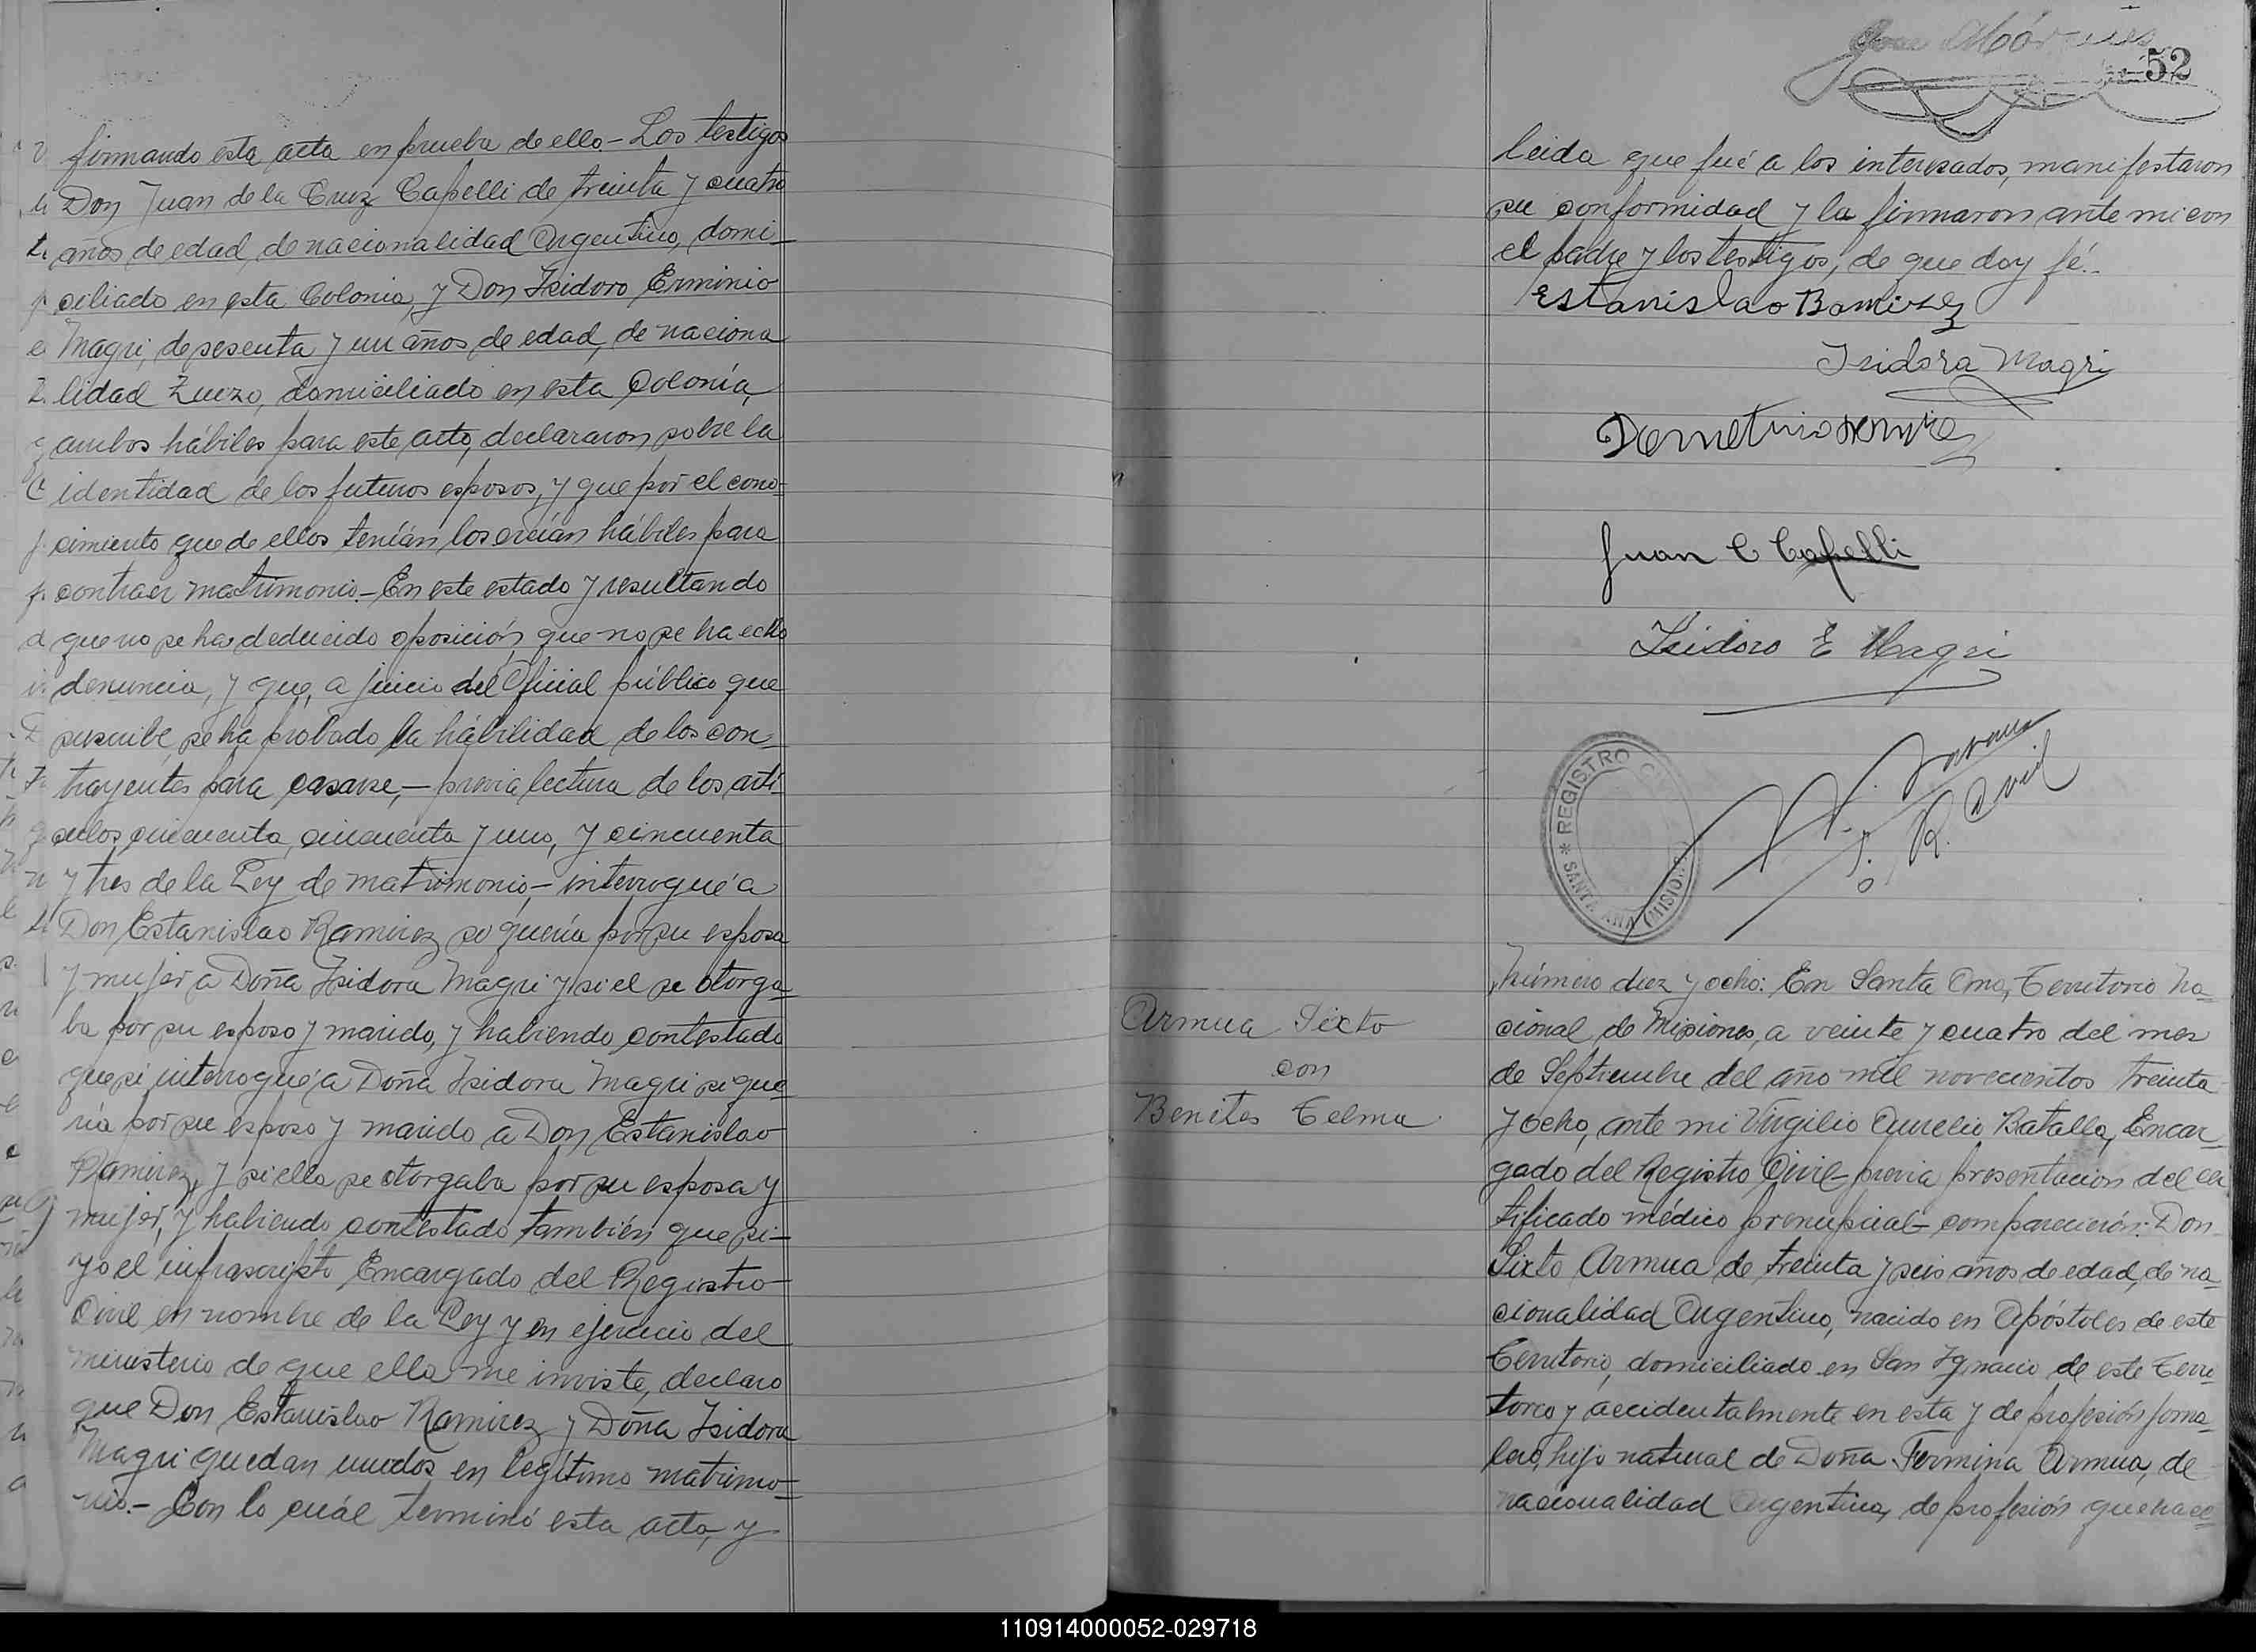 firmando esta acta en prueba de ello.- Los testigos
Don Juan de la Cruz Capelli de treinta y cuatro
años de edad, de nacionalidad Argentino, domi-
ciliado en esta Colonia, y Don Isidoro Erminio
Magri, de sesenta y un años de edad, de naciona
lidad Zuizo, domiciliado en esta Colonia,
ambos hábiles para este acto, declararon sobre la
identidad de los futuros esposos, y que por el cono-
cimiento que de ellos tenían los creían hábiles para
contraer matrimonio.- En este estado y resultando
que no se ha deducido oposición, que no se ha echo
denuncia, y que, a juicio del Oficial público que
suscribe, se ha probado la hábilidad de los con-
trayentes para casarse,- previa lectura de los artí-
culos cincuenta, cincuenta y uno, y cincuenta
y tres de la Ley de matrimonio,- interrogué a
Don Estanislao Ramirez si quería por su esposa
y mujer a Doña Isidora Magri y si el se otorga-
ba por su esposo y marido, y habiendo contestado
que si interrogué a Doña Isidora Magri si que-
ría por su esposo y marido a Don Estanislao
Ramirez, y si ella se otorgaba por su esposa y
mujer, y habiendo contestado también que si-
yo el infrascripto Encargado del Registro
Civil en nombre de la Ley y en ejercicio del
ministerio de que ella me inviste, declaro
que Don Estanislao Ramirez y Doña Isidora
Magri quedan unidos en legítimo matrimo-
nio.- Con lo cuál terminó esta acta, y
52
leida que fué a los interesados, manifestaron
su conformidad y la firmaron ante mi con
el padre y los testigos, de que doy fé.-
Estanislao Ramirez
Isidora Magri
Juan C Capelli
Isidoro E Magri
REGISTRO
SANTA ANA (MISION
R. Civil
Armua Sixto
con
Benites Telma
Número diez y ocho: En Santa Ana, Territorio Na-
cional de Misiones, a veinte y cuatro del mes
de Septiembre del año mil novecientos treinta
y ocho, ante mi Virgilio Aurelio Batalla, Encar-
gado del Registro Civil- previa presentacion del cer
tificado médico prenupcial- comparecieron: Don
Sixto Armua de treinta y seis años de edad, de na-
cionalidad Argentino, nacido en Apóstoles de este
Territorio, domiciliado en San Ignacio de este Terri-
torio y accidentalmente en esta y de profesión jorna-
lero, hijo natural de Doña Fermina Armua, de
nacionalidad Argentina, de profesión quehace-
110914000052-029718